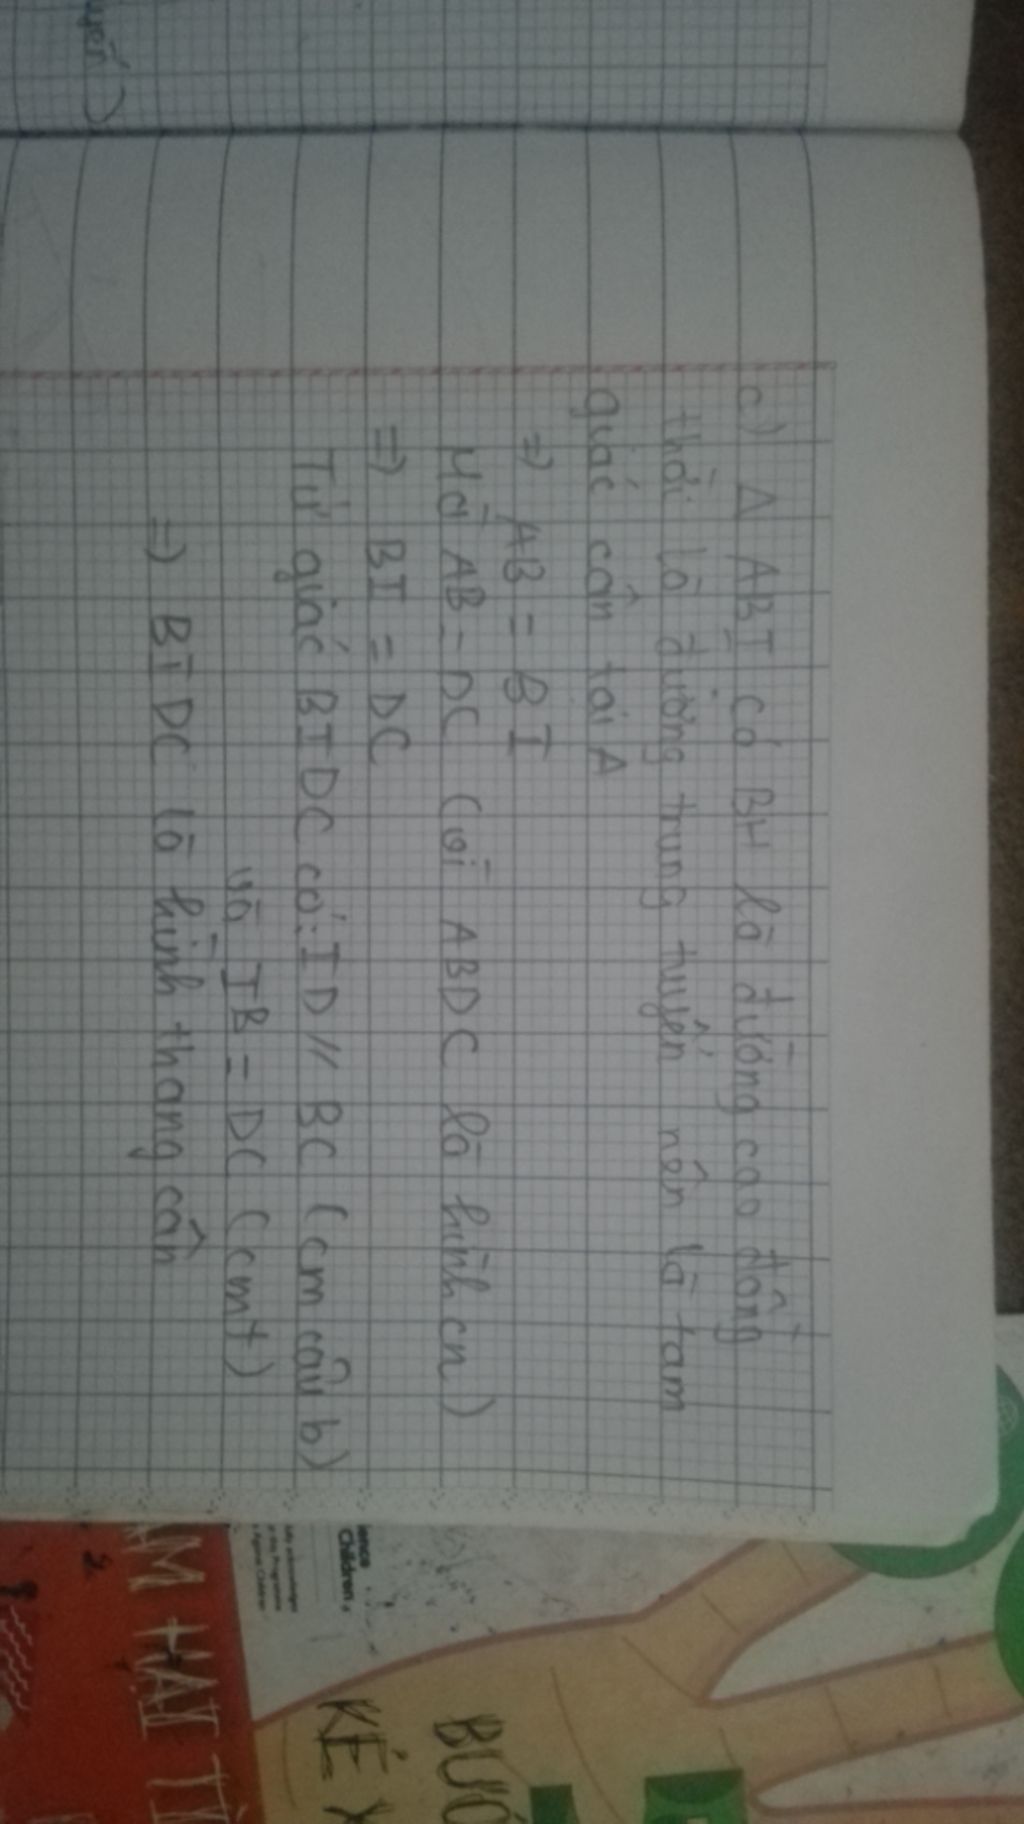 c) Δ ABI có BH là đường cao đồng
thời là đường trung tuyến nên là tam
giác cân tại A
=> AB = BI
Mà AB = DC (vì ABDC là hình cn)
=> BI = DC
Tứ giác BIDC có: ID // BC (cm câu b)
và IB = DC (cmt)
=> BIDC là hình thang cân
BƯỚ
KẺ X
ÀM HAI T
ience
Children,